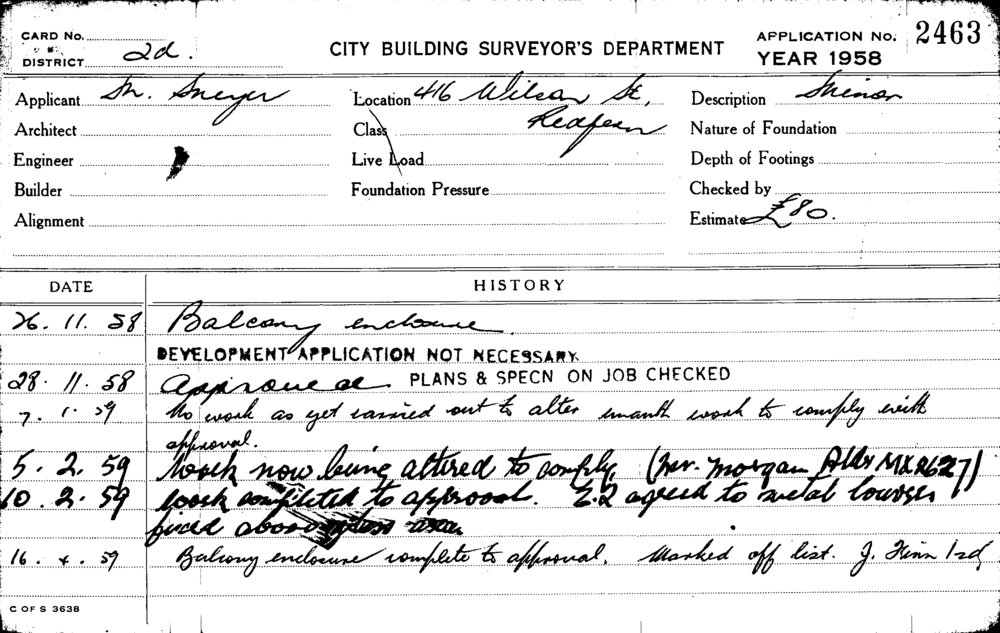 CARD No.
DISTRICT 2d.
CITY BUILDING SURVEYOR'S DEPARTMENT
APPLICATION No. 2463
YEAR 1958
Applicant M. Location 416 Wilson St, Description Minor
Architect Class Redfern Nature of Foundation
Engineer Live Load Depth of Footings
Builder Foundation Pressure Checked by
Alignment Estimate £80.
DATE HISTORY
26. 11. 58 Balcony enclosure.
DEVELOPMENT APPLICATION NOT NECESSARY.
28. 11. 58 Approved PLANS & SPECN ON JOB CHECKED
7. 1. 59 No work as yet carried out to alter work to comply with
approval.
5. 2. 59 Work now being altered to comply (Mr. Morgan MX2627)
10. 2. 59 work completed to approval. agreed to metal louvres
fixed above
16. 4. 59 Balcony enclosure complete to approval. Marked off list. J. Finn
C OF S 3638